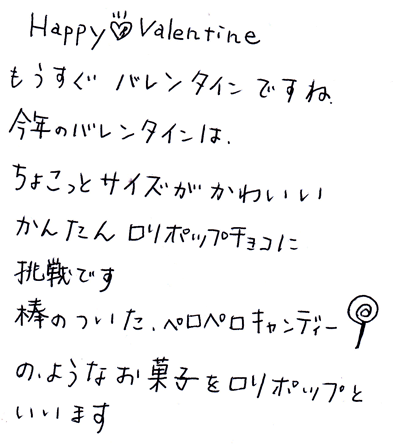 Happy♡Valentine
もうすぐ バレンタインですね.
今年のバレンタインは.
ちょこっとサイズがかわいい
かんたん ロリポップチョコに
挑戦です
棒のついた.ペロペロキャンディー
の.ようなお菓子をロリポップと
いいます